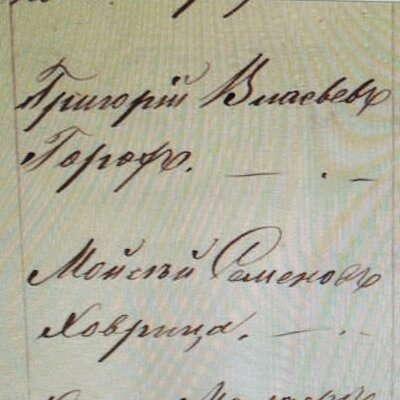 Григорій Власьевъ
Горохъ.
Мойсѣй Семеновъ
Ховрица.